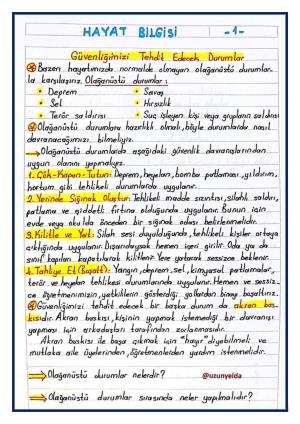 HAYAT BİLGİSİ -1-
Güvenliğimizi Tehdit Edecek Durumlar
Bazen hayatımızda normalde olmayan olağanüstü durumlar-
la karşılaşırız. Olağanüstü durumlar :
• Deprem • Savaş
• Sel • Hırsızlık
• Terör saldırısı • Suç işleyen kişi veya grupların saldırısı
Olağanüstü durumlara hazırlıklı olmalı, böyle durumlarda nasıl
davranacağımızı bilmeliyiz.
Olağanüstü durumlarda aşağıdaki güvenlik davranışlarından
uygun olanını yapmalıyız.
1. Çök-Kapan-Tutun: Deprem, heyelan, bomba patlaması, yıldırım,
hortum gibi tehlikeli durumlarda uygulanır.
2. Yerinde Sığınak Oluştur: Tehlikeli madde sızıntısı, silahlı saldırı,
patlama ve şiddetli fırtına olduğunda uygulanır. Bunun için
evde veya okulda önceden bir sığınak odası belirlenmelidir.
3. Kilitle ve Yat: Silah sesi duyulduğunda, tehlikeli kişiler ortaya
çıktığında uygulanır. Dışarıdaysak hemen içeri girilir. Oda ya da
sınıf kapıları kapatılarak kilitlenir. Yere yatarak sessizce beklenir.
4. Tahliye Et (Boşalt): Yangın, deprem, sel, kimyasal patlamalar,
terör ve heyelan tehlikesi durumlarında uygulanır. Hemen ve sessiz-
ce öğretmenimizin, yetkililerin gösterdiği yollardan binayı boşaltırız.
Güvenliğimizi tehdit edecek bir başka durum da akran bas-
kısıdır. Akran baskısı, kişinin yapmak istemediği bir davranışı
yapması için arkadaşları tarafından zorlanmasıdır.
Akran baskısı ile başa çıkmak için "hayır" diyebilmeli ve
mutlaka aile üyelerinden, öğretmenlerden yardım istenmelidir.
Olağanüstü durumlar nelerdir? @uzunyelda
Olağanüstü durumlar sırasında neler yapmalıyız?